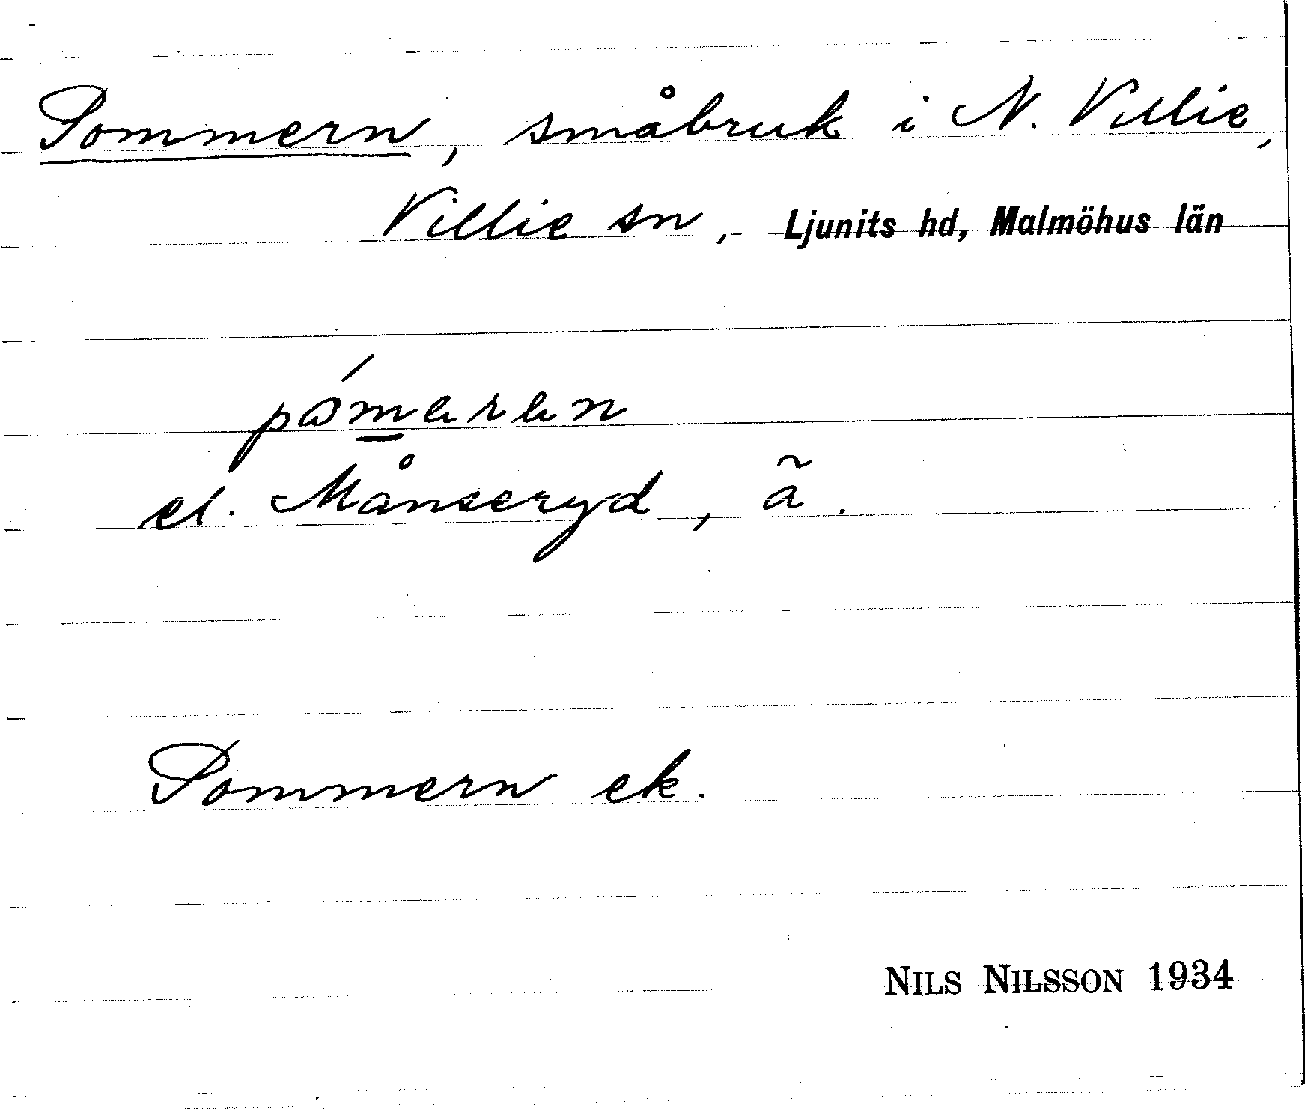 Pommern, småbruk i N. Villie,
Villie sn, Ljunits hd, Malmöhus län
påmaran
el. Månseryd, ã.
Pommern ek.
NILS NILSSON 1934